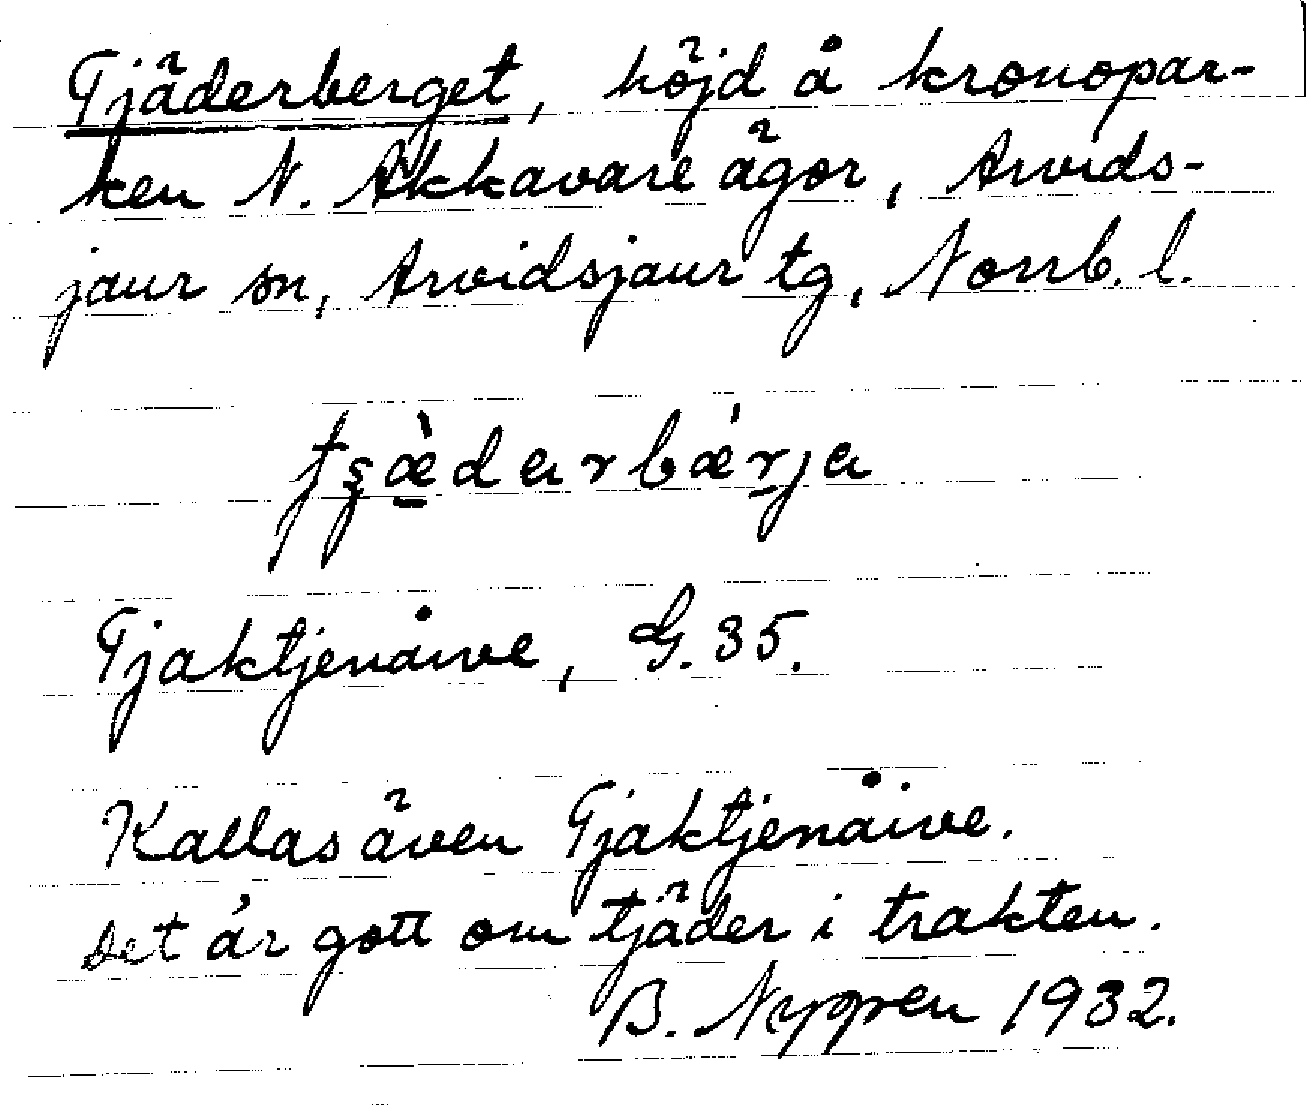 Tjäderberget, höjd å kronopar-
ken N. Akkavare ägor, Arvids-
jaur sn, Arvidsjaur tg, Norrb. l.
tʂæ̀darbǽrja
Tjaktjenåive, G. 35.
Kallas även Tjaktjenåive.
Det är gott om tjäder i trakten.
B. Nygren 1932.